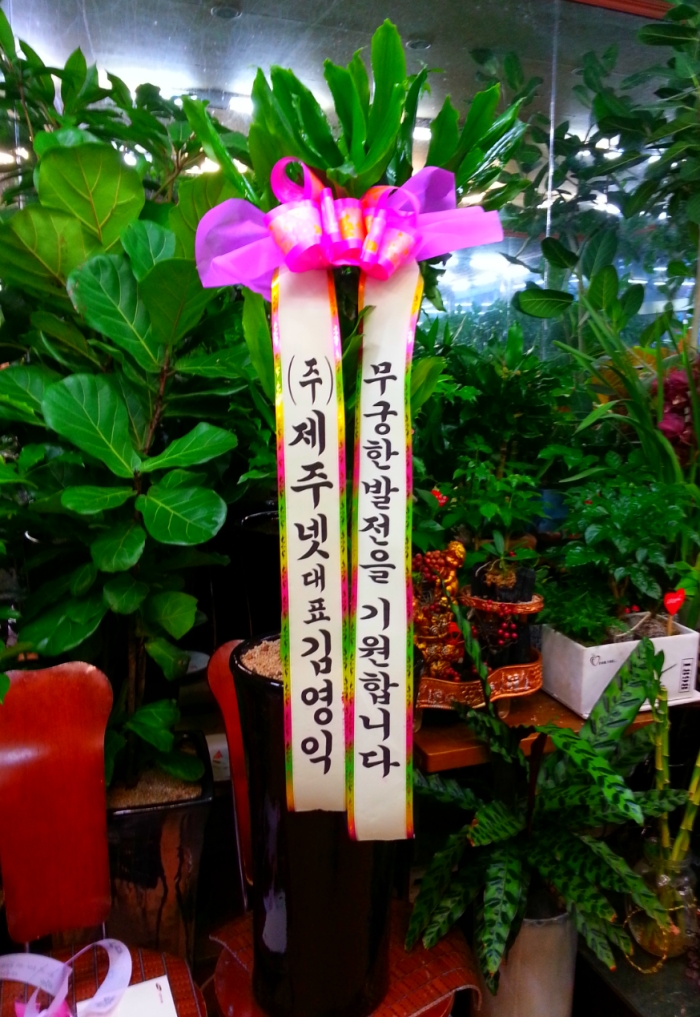 무궁한 발전을 기원합니다
(주)제주넷 대표 김영익